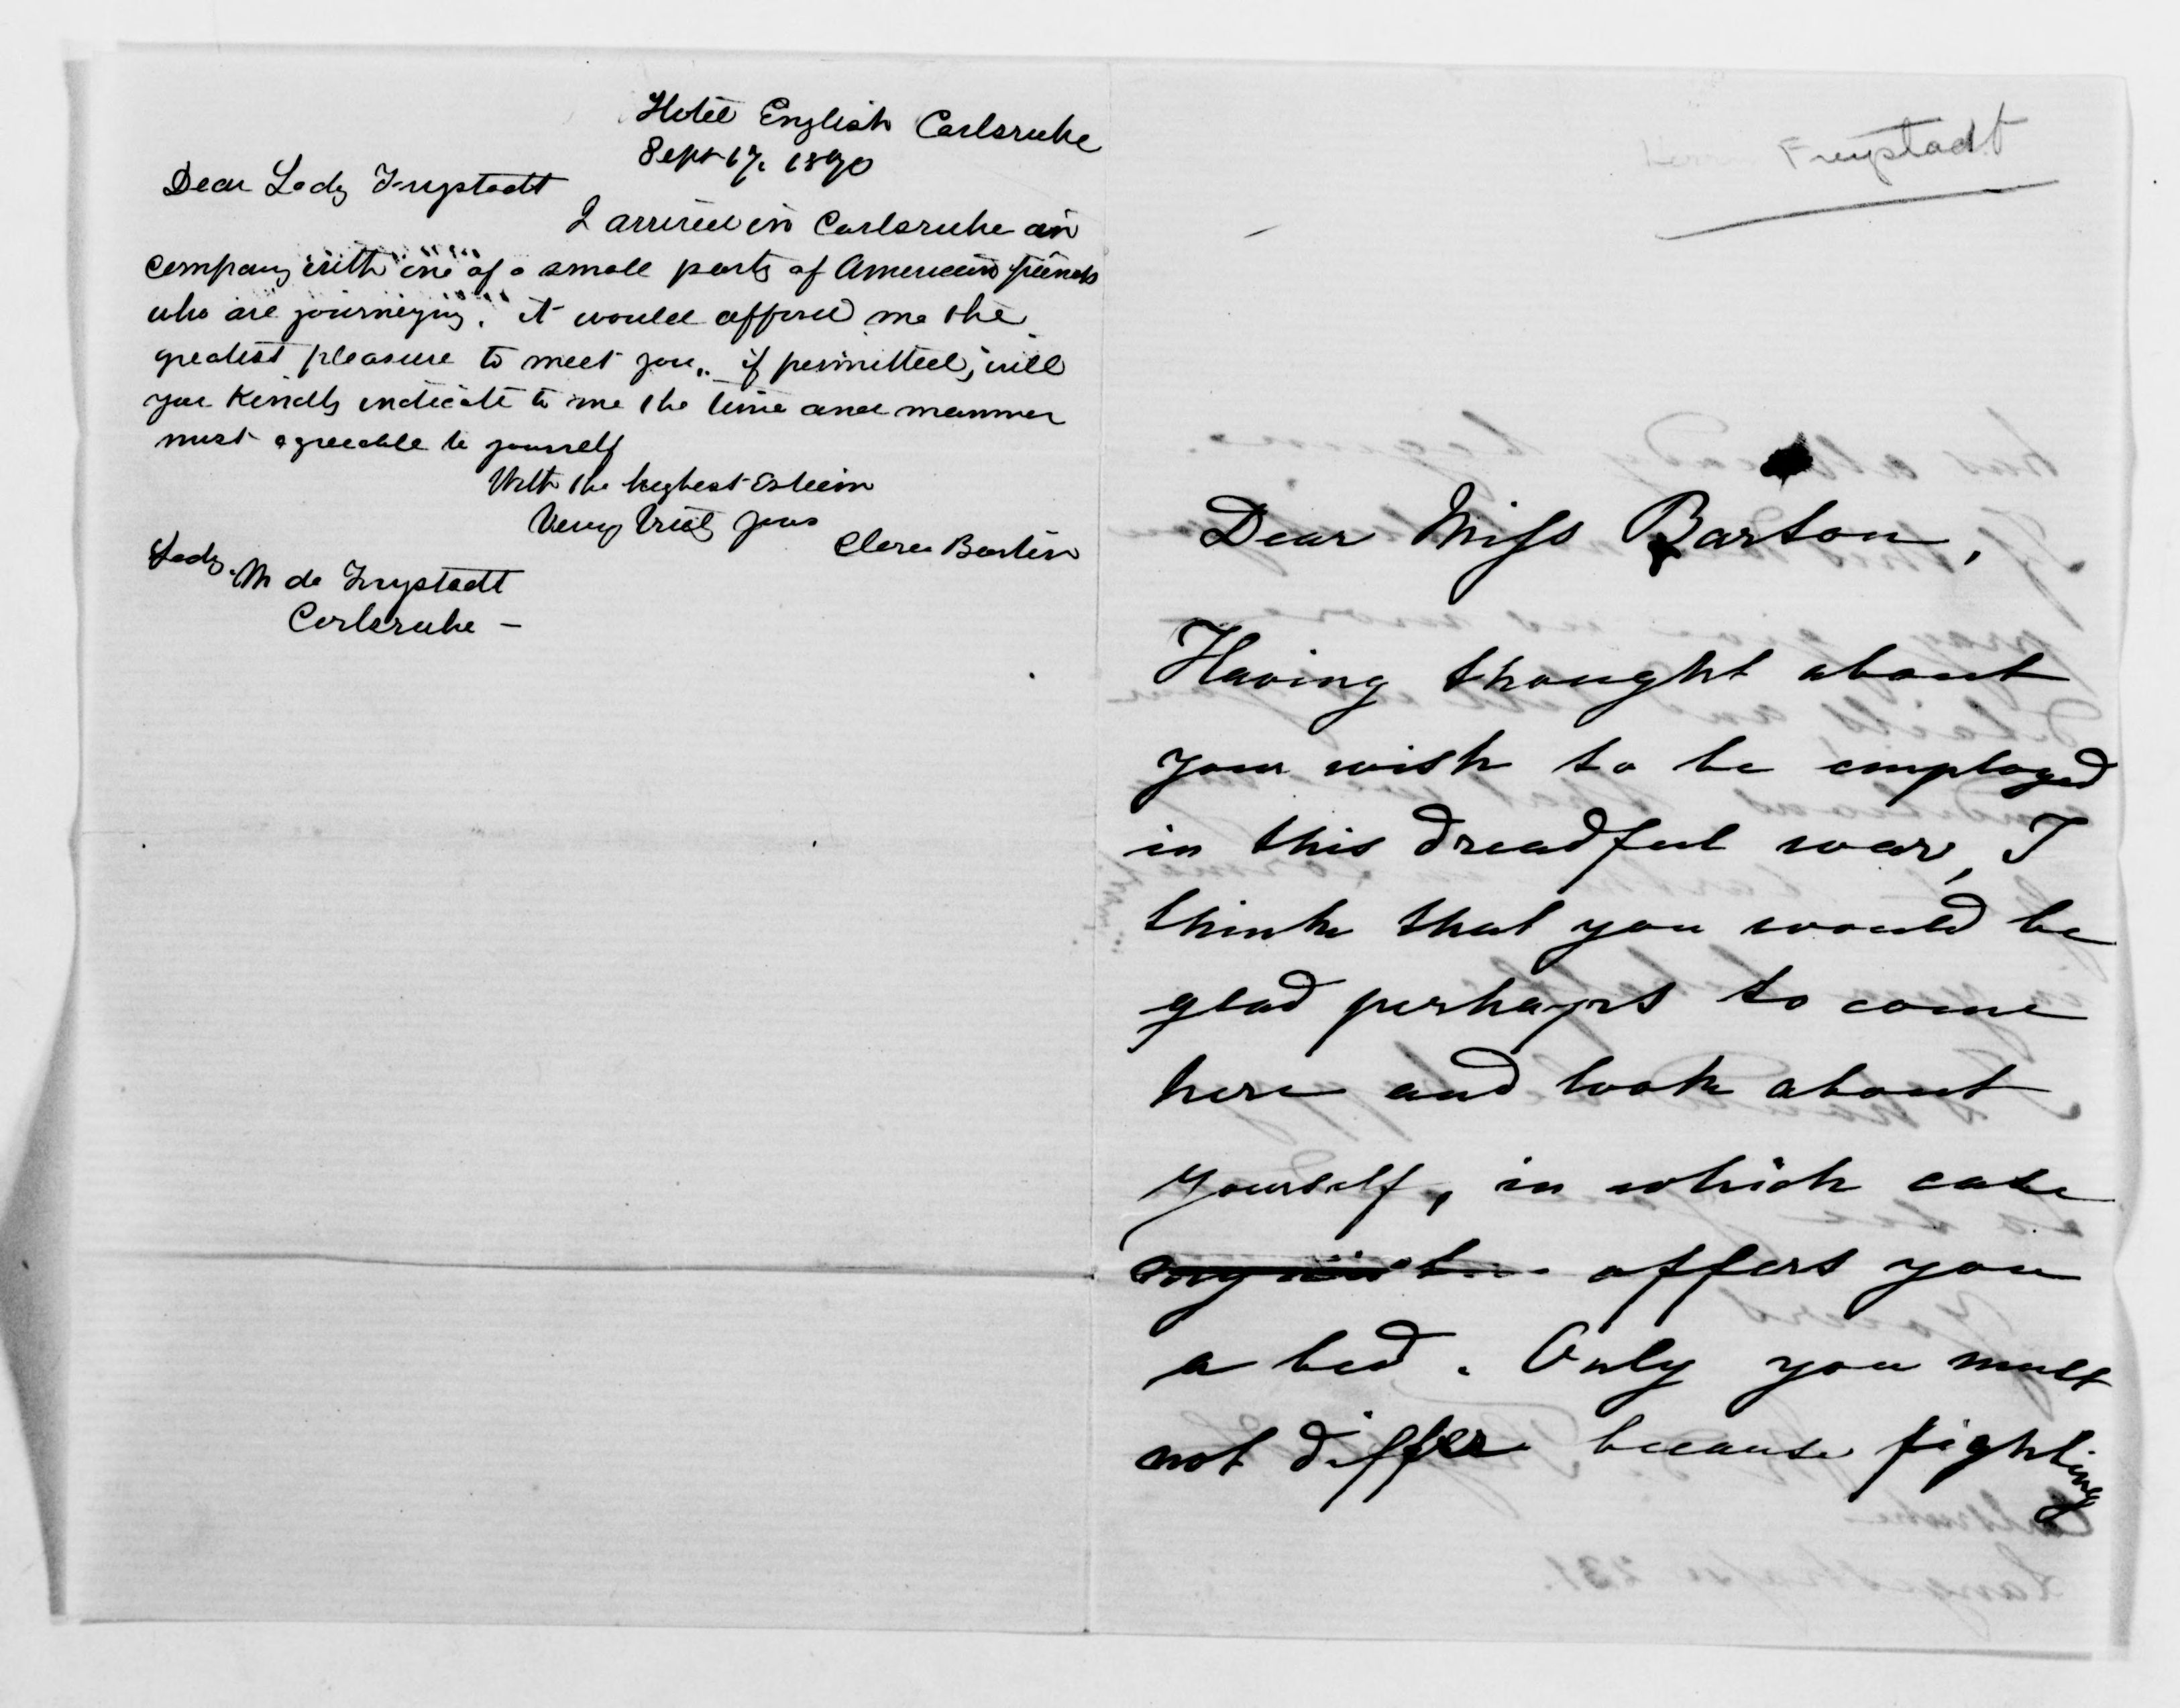 Hotel English Carlsruhe
Sept 17, 1870
Dear Lady Freystadt
I arrived in Carlsruhe in
company with one of a small party of American friends
who are journeying. it would afford me the
greatest pleasure to meet you, if permitted, will
you kindly indicate to me the time and manner
most agreeable to yourself
With the highest Esteem
Very truly yours
Clara Barton
Lady M de Freystadt
Carlsruhe —
Freystadt
Dear Miss Barton,
Having thought about
your wish to be employed
in this dreadful war, I
think that you would be
glad perhaps to come
here and look about
yourself, in which case
offers you
a bed. Only you must
not differ because fighting